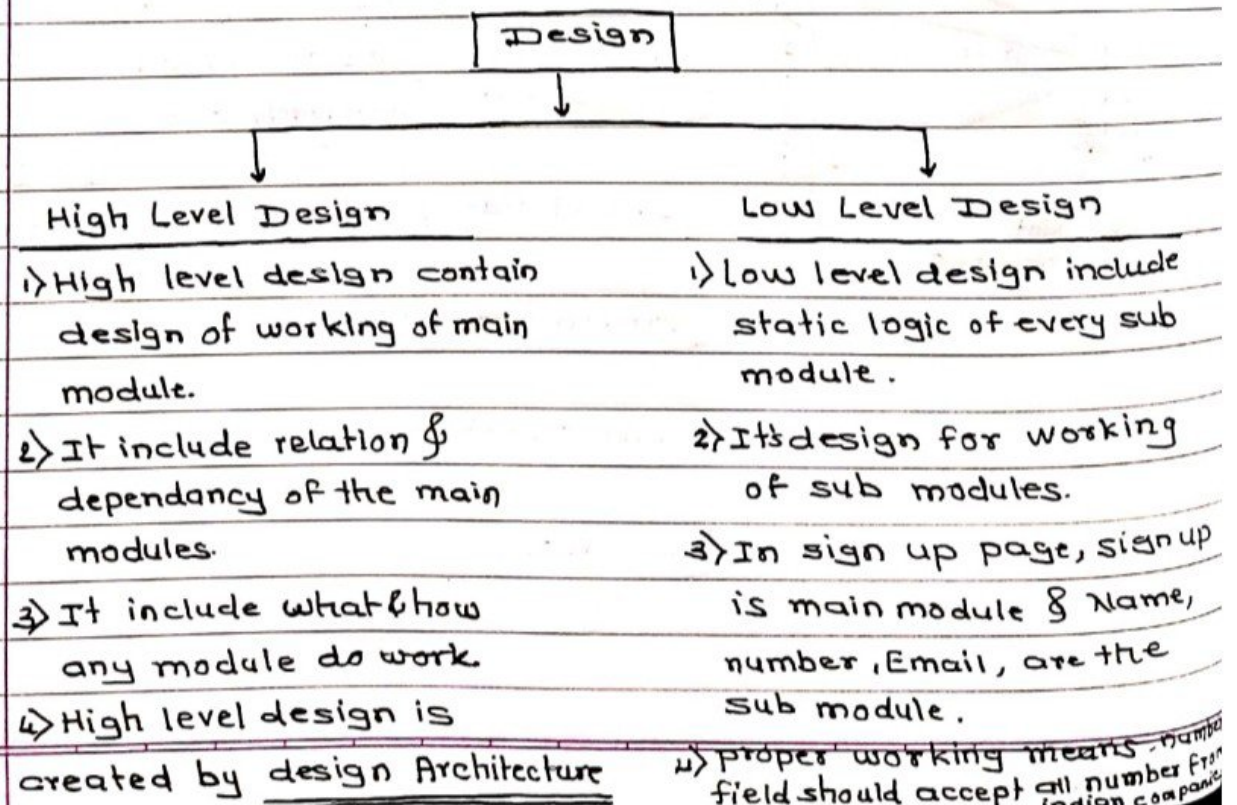 Design
High Level Design
1) High level design contain
design of working of main
module.
2) It include relation &
dependancy of the main
modules.
3) It include what & how
any module do work.
4) High level design is
created by design Architecture
Low Level Design
1) Low level design include
static logic of every sub
module.
2) It's design for working
of sub modules.
3) In sign up page, signup
is main module & Name,
number, Email, are the
sub module.
4) proper working means number
field should accept all number from
indian companie